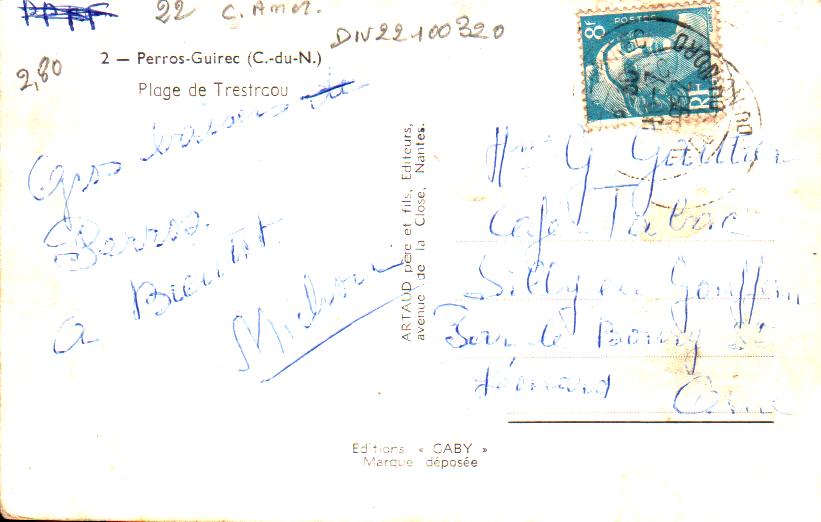 22 C. Amor.
DIV22100320
2,80
2 — Perros-Guirec (C.-du-N.)
Plage de Trestrcou
Gros baisers de
Perros.
a Bientôt
Michou
ARTAUD père et fils, Editeurs,
avenue de la Close, Nantes.
8F POSTES
RF
DU NORD
G Gautier
Café Tabac
Silly en Gouffern
Par le Bourg St
Léonard Orne
Editions « GABY »
Marque déposée